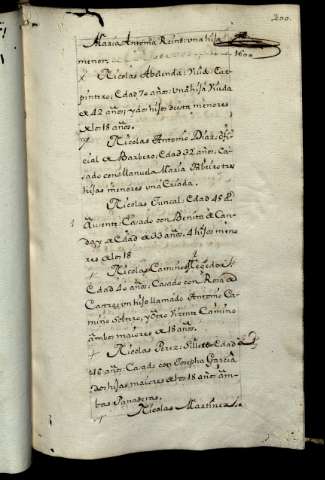 200.
Maria Antonia Reino: una hija
menor.
Nicolas Abelenda: Viud: Car-
pintero; Edad 70 años: una hija Viuda
de 42 años, y dos hijos de esta menores
de los 18 años.
Nicolas Antonio Diaz: Ofi-
cial de Barbero; Edad 32 años; Ca-
sado con Manuela Maria Ribeiro tres
hijas menores una Criada.
Nicolas Juncal: Edad 45 
Auvente: Casado con Benita de Can-
da de Edad de 33 años, 4 hijos meno
res de los 18
Nicolas Camino Regidor
Edad 40 años; Casado con Rosa de
Castro; un hijo llamado Antonio Ca-
mino Soltero, y otro Vicente Camino
ambos maiores de 18 años.
Nicolas Perez: Sillero: Edad
46 años; Casado con Josepha Garcia
dos hijas maiores de los 18 años am-
bas Panaderas.
Nicolas Martinez